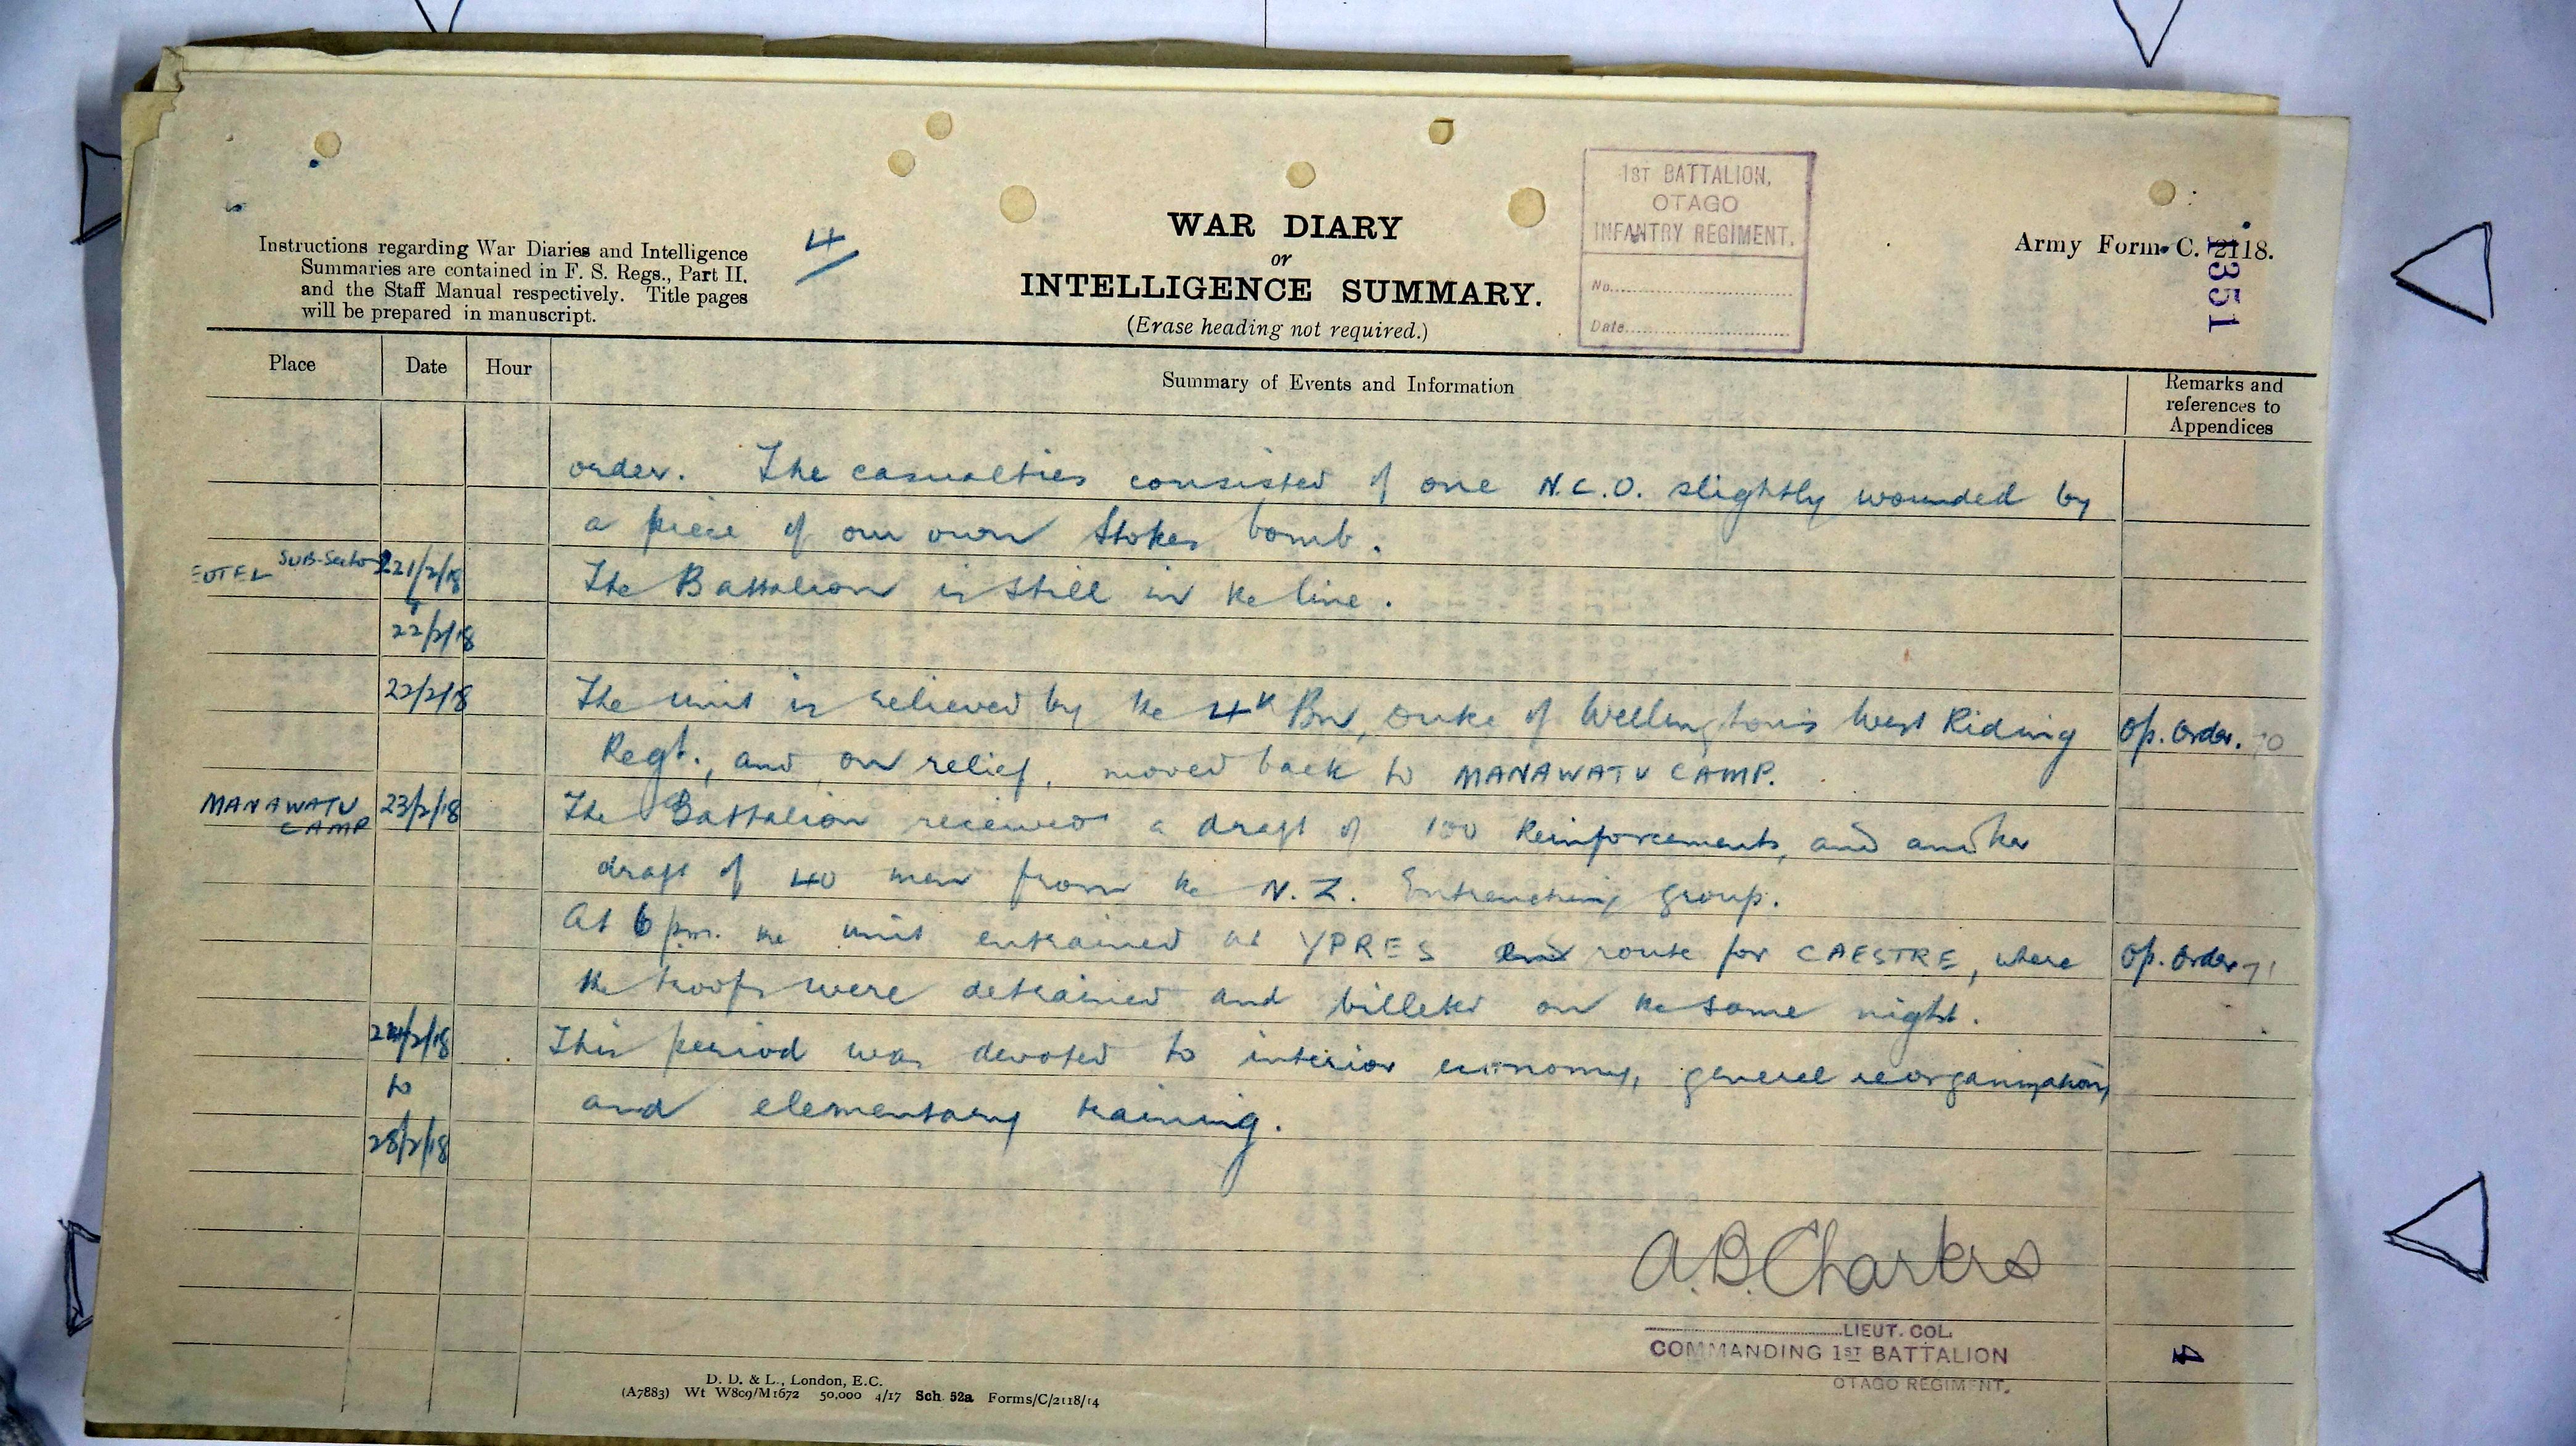 1ST BATTALION,
OTAGO
INFANTRY REGIMENT.
No.
Date
Instructions regarding War Diaries and Intelligence
Summaries are contained in F. S. Regs., Part II.
and the Staff Manual respectively. Title pages
will be prepared in manuscript.
4
WAR DIARY
or
INTELLIGENCE SUMMARY.
(Erase heading not required.)
Army Form C. 2118.
1351
Place
Date
Hour
Summary of Events and Information
Remarks and
references to
Appendices
order. The casualties consisted of one N.C.O. slightly wounded by
a piece of our own Stokes bomb.
Sub-Sector 21/2/18 The Battalion is still in the line.
22/2/18
22/2/18 The unit is relieved by the 4th Bn, Duke of Wellington's West Riding Op. Order. 70
Regt., and, on relief, moved back to MANAWATU CAMP.
MANAWATU CAMP 23/2/18 The Battalion received a draft of 100 Reinforcements, and another
draft of 40 men from the N.Z. Entrenching group.
At 6 p.m. the unit entrained at YPRES en route for CAESTRE, where Op. Order 71
the troops were detrained and billeted on the same night.
24/2/18 This period was devoted to interior economy, general reorganization,
to
and elementary training.
28/2/18
A.B. Charters
LIEUT. COL.
COMMANDING 1ST BATTALION
OTAGO REGIMENT.
4
D. D. & L., London, E.C.
(A7883) Wt W809/M1672 50,000 4/17 Sch. 52a Forms/C/2118/14